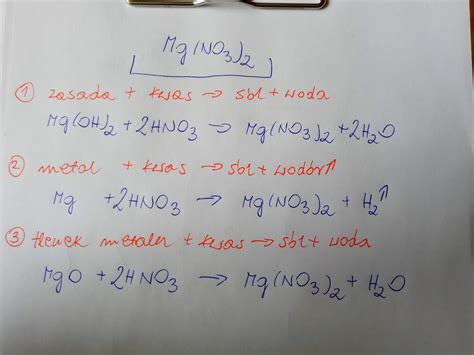 Mg(NO₃)₂
① zasada + kwas → sól + woda
Mg(OH)₂ + 2HNO₃ → Mg(NO₃)₂ + 2H₂O
② metal + kwas → sól + wodór↑
Mg + 2HNO₃ → Mg(NO₃)₂ + H₂↑
③ tlenek metalu + kwas → sól + woda
MgO + 2HNO₃ → Mg(NO₃)₂ + H₂O